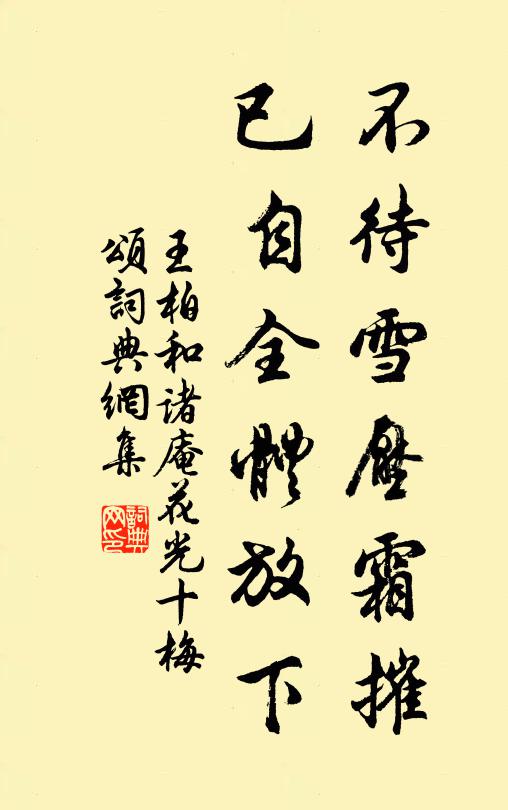 不待雪壓霜摧
已自全體放下
王柏和諸庵花光十梅
頌詞典網集
詞典
网印